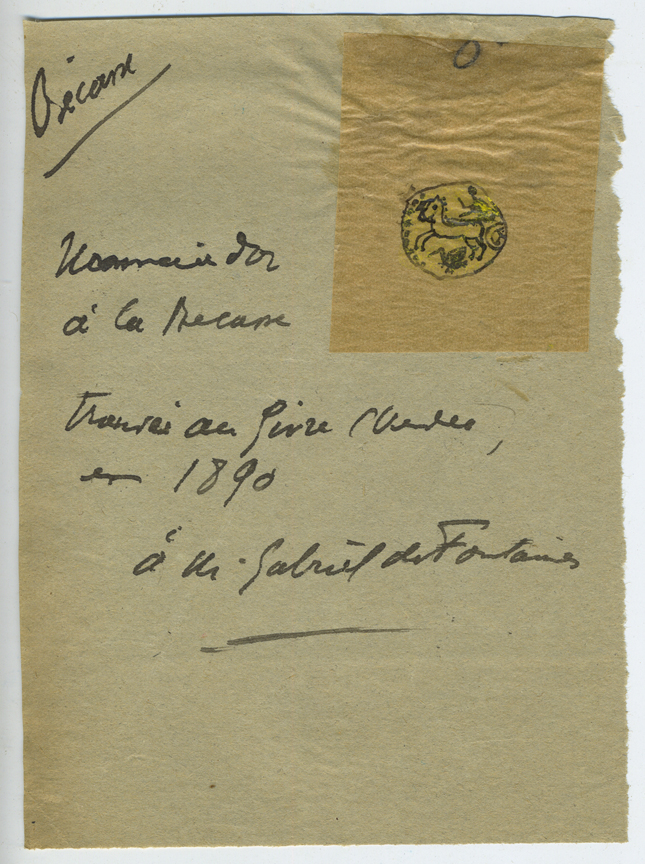 Bécasse
O
Monnaie d'or
à la Becasse
trouvée au Givre (Vendée)
en 1890
à M. Gabriel de Fontaines